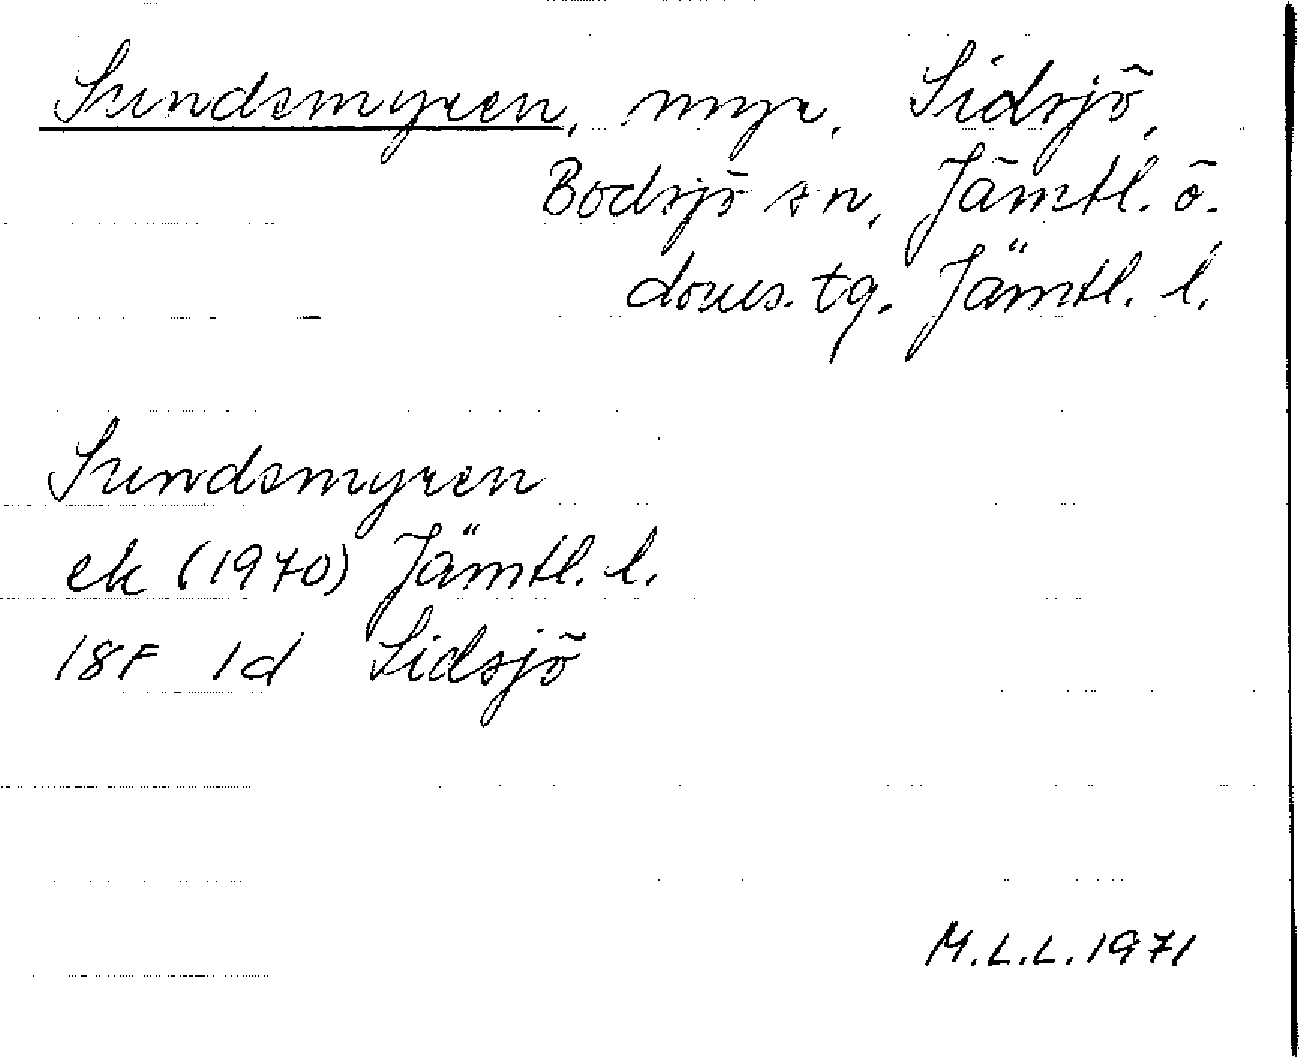 Sundsmyren, myr, Sidsjö,
Bodsjö sn, Jämtl. ö.
doms. tg. Jämtl. l.
Sundsmyren
ek (1970) Jämtl. l.
18F 1d Sidsjö
M.L.L. 1971